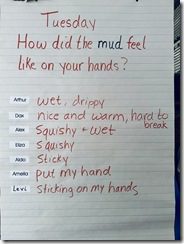 Tuesday
How did the mud feel
like on your hands?
Arthur wet, drippy
Dax nice and warm, hard to
break
Alex Squishy + wet
Eliza squishy
Aldo Sticky
Amelia put my hand
Levi sticking on my hands